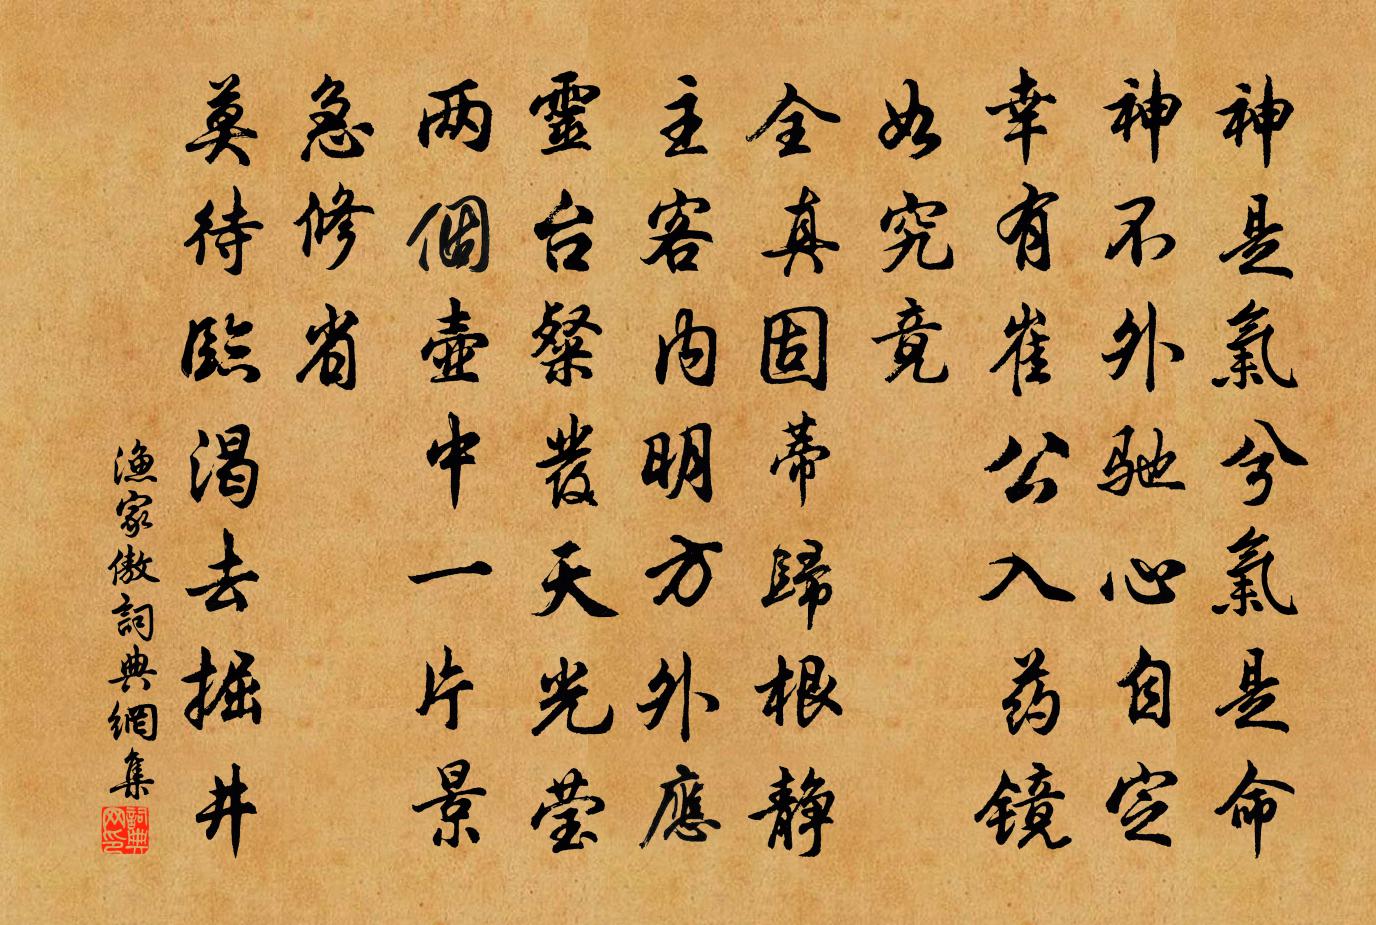 神是氣兮氣是命
神不外馳心自定
幸有崔公入药镜
如究竟
全真固蒂歸根静
主客内明方外應
靈台粲發天光莹
两個壺中一片景
急修省
莫待臨渴去掘井
漁家傲詞典網集
詞典网印